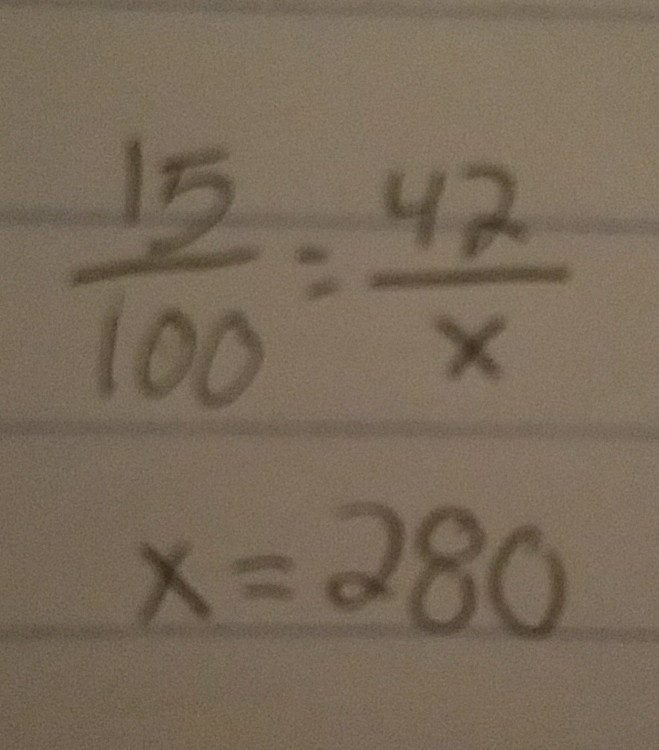 15/100 = 42/x
x = 280